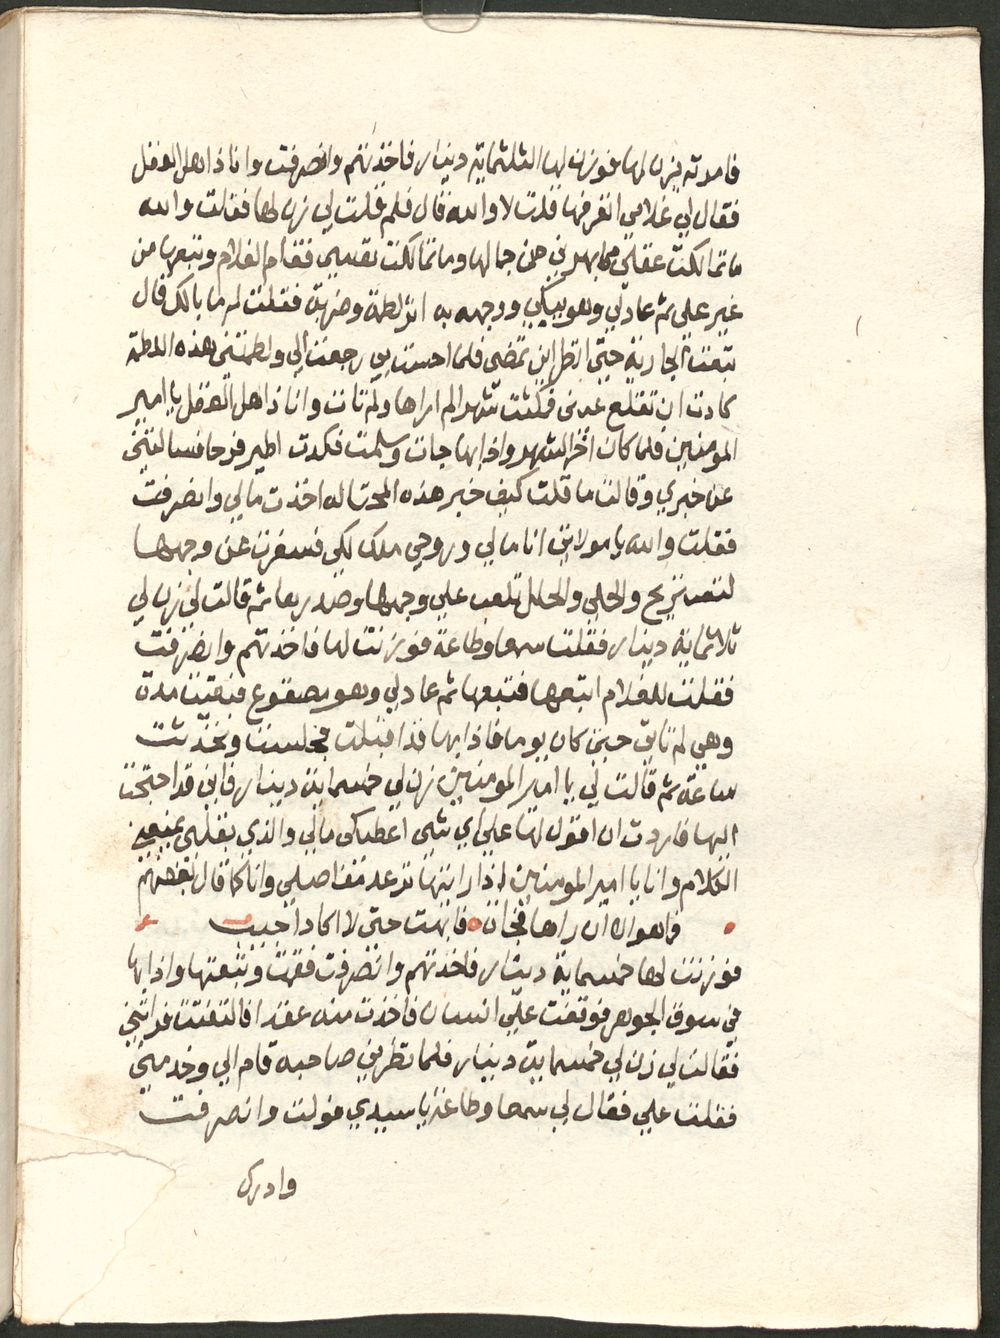 فامرته يزن لها فوزن لها الثلثماية دينار فاخذتهم وانصرفت وانا ذاهل العقل
فقال لي غلامي اتعرفها قلت لا والله قال فلم قلت لي زن لها فقلت والله
ما تمالكت عقلي مما بهرني من جمالها وما تمالكت نفسي فقام الغلام وتبعها من
غير علمي ثم عاد لي وهو يبكي ووجهه به اثر لطمة وضربة فقلت له ما بالك قال
تبعت الجارية حتى انظر اين تمضي فلما احست بي رجعت الي ولطمتني هذه اللطمة
كادت ان تقلع عيني فمكثت شهر الم اراها ولم تات وانا ذاهل العقل يا امير
المومنين فلما كان اخر الشهر واذا بها جات وسلمت فكدت اطير فرحا فسالتني
عن خبري وقالت ما قلت كيف خبر هذه المحتاله اخذت مالي وانصرفت
فقلت والله يا مولاتي انا مالي وروحي ملك لكي فسفرت عن وجهها
لتستريح والحلي والحلل تلعب علي وجهها وصدرها ثم قالت لي زن لي
ثلاثماية دينار فقلت سمعا وطاعة فوزنت لها فاخذتهم وانصرفت
فقلت للغلام اتبعها فتبعها ثم عاد لي وهو مصفوع فبقيت مدة
وهي لم تاتي حتى كان يوما فاذا بها قد اقبلت فجلست وتحدثت
ساعة ثم قالت لي يا امير المومنين زن لي خمسماية دينار فاني قد احتجت
اليها فاردت ان اقول لها علي اي شي اعطيكي مالي والذي بقلبي يمنعني
الكلام وانا يا امير المومنين اذا رايتها ترعد مفاصلي وانا كما قال بعضهم
فما هو الا ان راها فجاة فابهت حتى لا اكاد اجيب
فوزنت لها خمسماية دينار فاخذتهم وانصرفت فقمت وتبعتها واذا بها
في سوق الجوهر فوقفت علي انسان فاخذت منه عقدا فالتفتت فراتني
فقالت لي زن لي خمسماية دينار فلما نظرني صاحبه قام الي وخدمني
فقلت علي فقال لي سمعا وطاعة يا سيدي فولت وانصرفت
وادرك